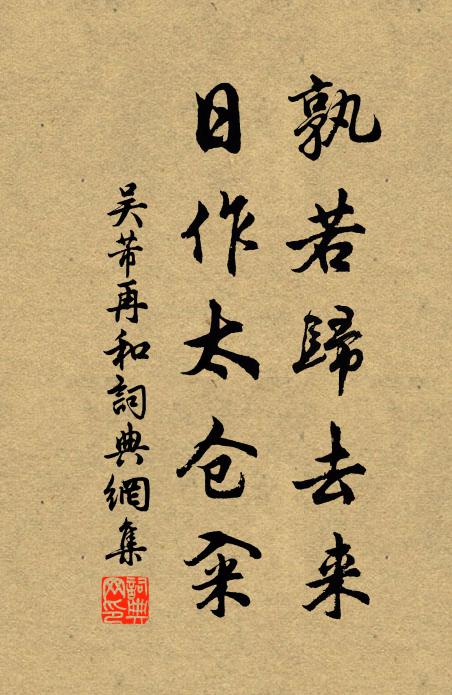 孰若歸去来
日作太仓籴
吴芾再和詞典網集
詞典
网印